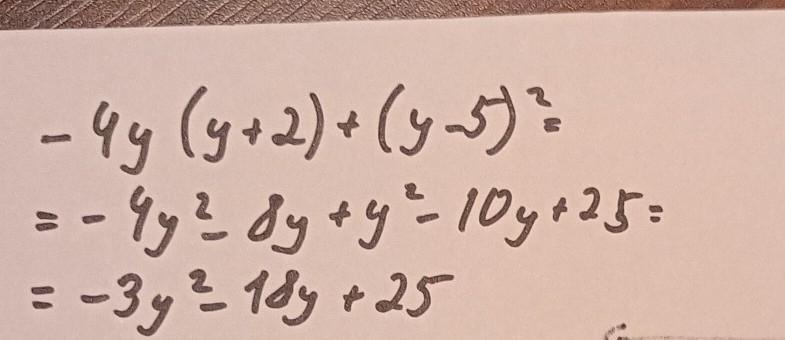 - 4y (y+2) + (y-5)² =
= - 4y² - 8y + y² - 10y + 25 =
= - 3y² - 18y + 25